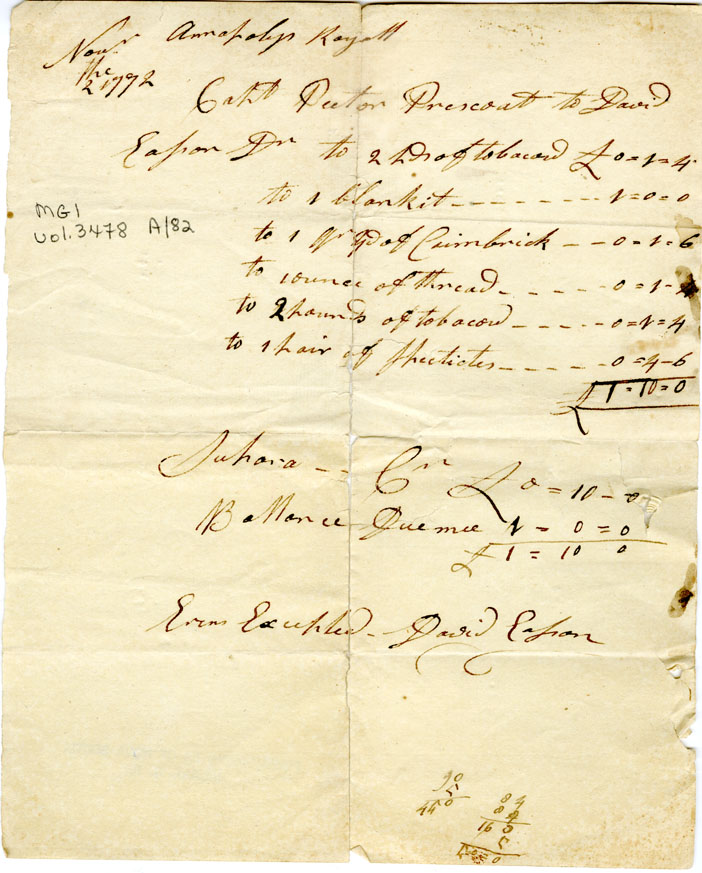 Novr Annapolys Royall
the
2 1792
Captt Peetor Prescoatt to David
Eason Dr to 2 lds of tobacow £ 0=1=4
to 1 blankit - - - - - - - - 1=0=0
to 1 qr yd of Caimbrick - - 0=1=6
to 1 ounce of thread - - - - - 0=1-4
to 2 pounds of tobacow - - - - 0=1=4
to 1 pair of specticles - - - - - 0=4-6
£ 1=10=0
MG1
vol. 3478 A/82
Cr £ 0=10-0
Ballance Due mee 1=0=0
£ 1=10 0
Errers Excepted - David Eason
90
5
450
84